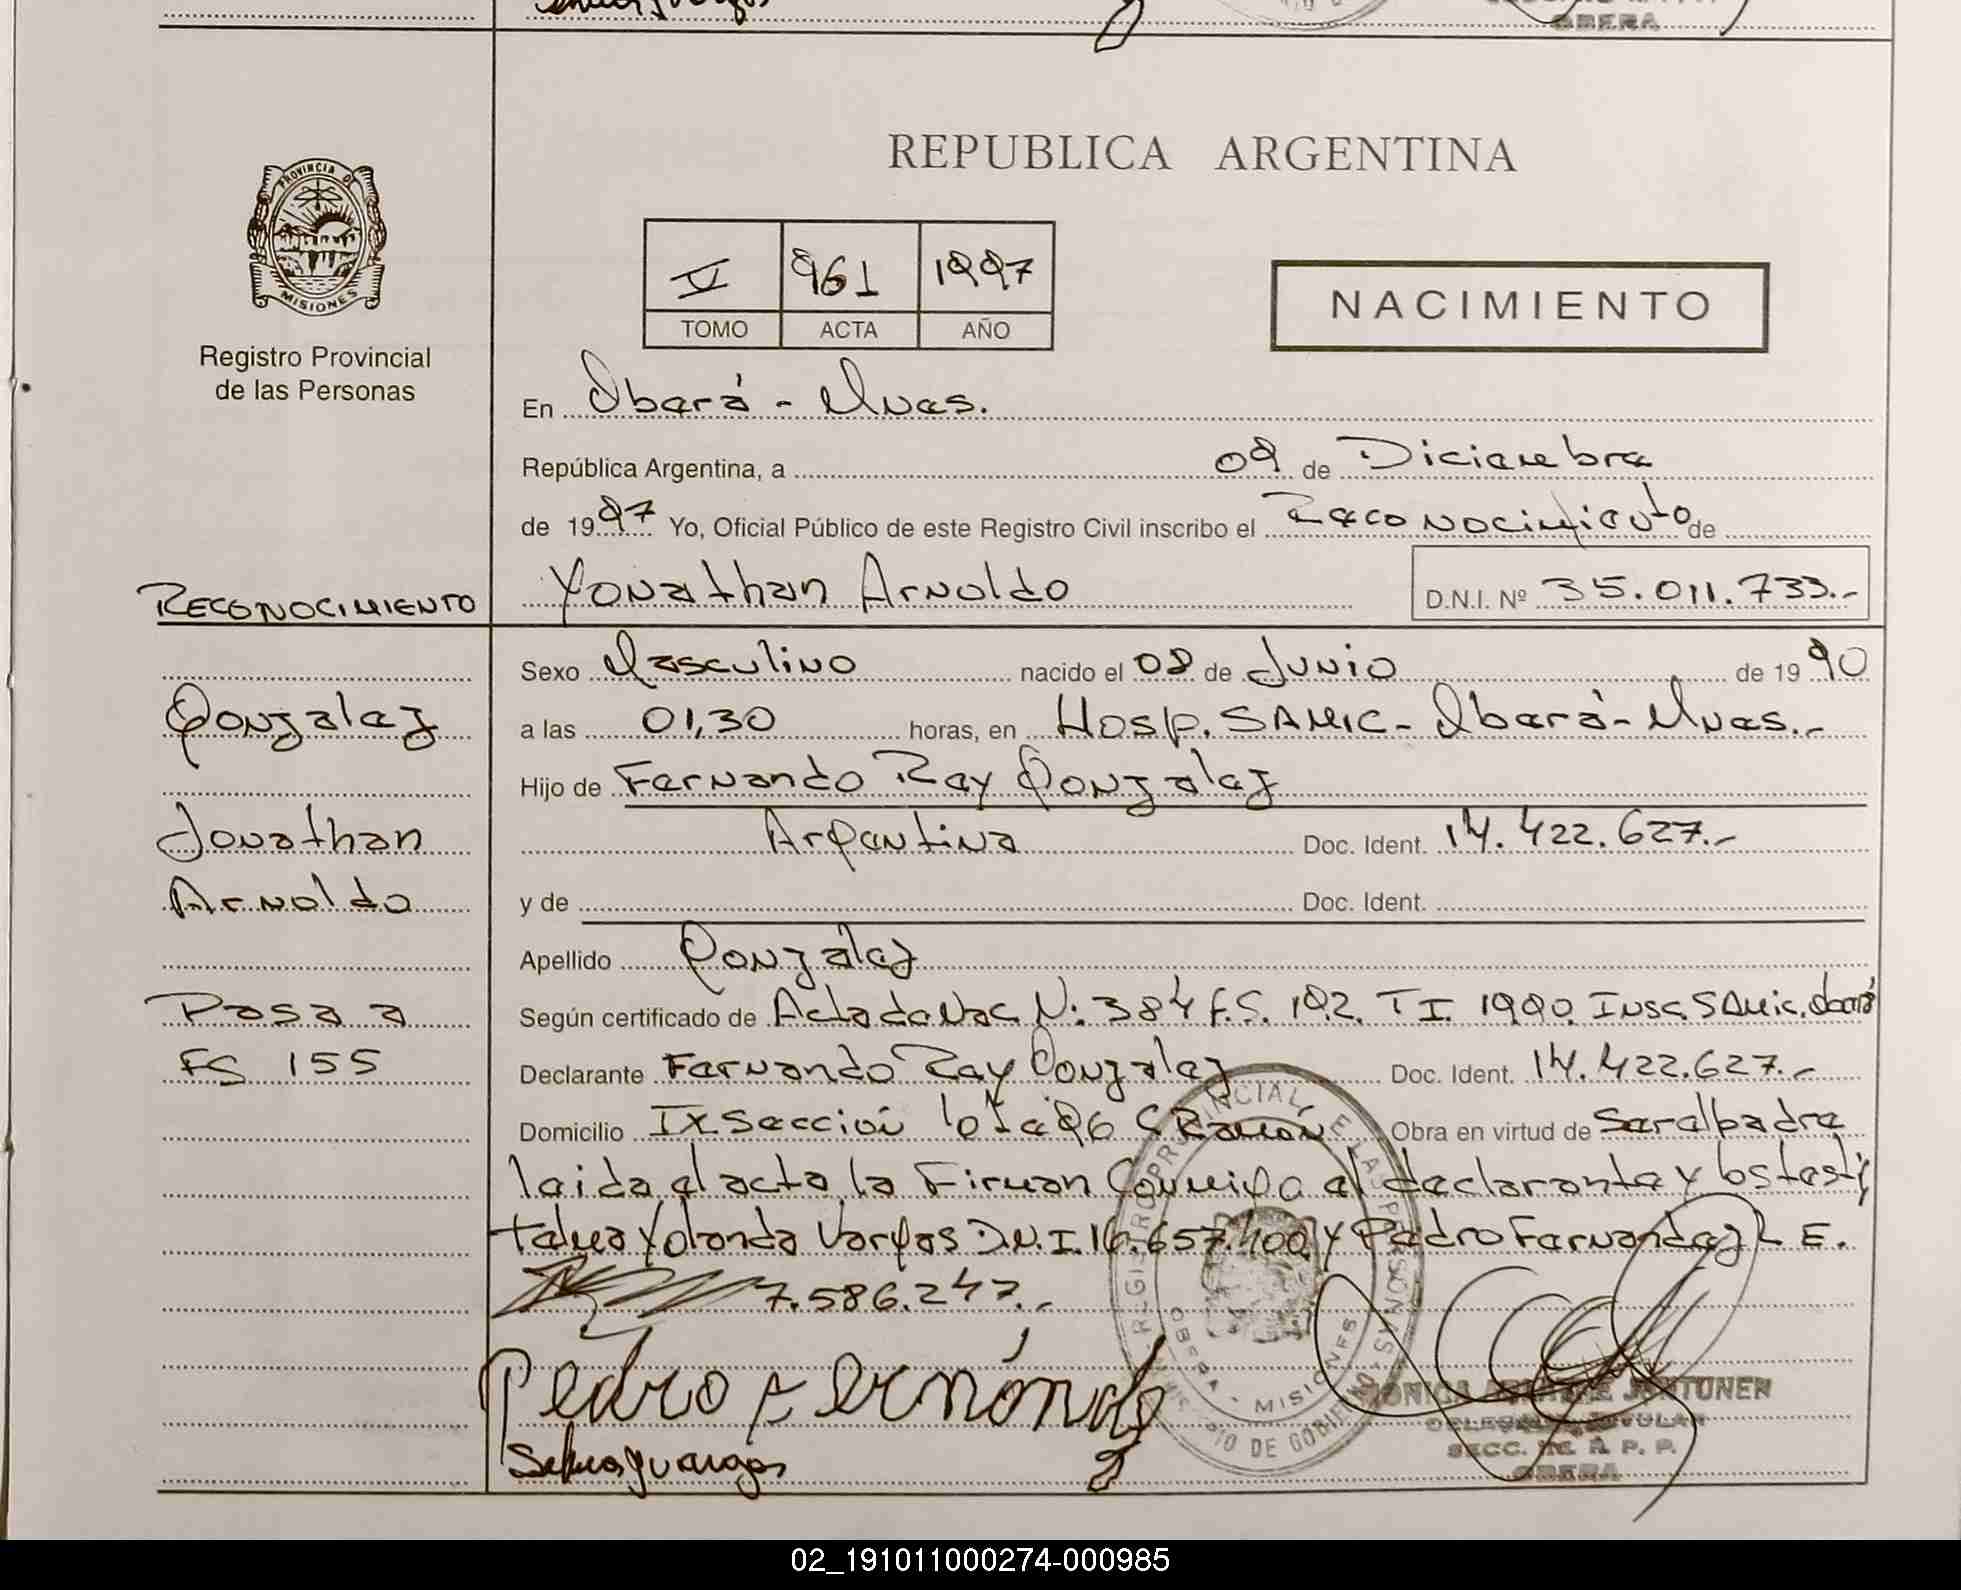 OBERA
REPUBLICA ARGENTINA
PROVINCIA DE
MISIONES
V 961 1997
TOMO ACTA AÑO
NACIMIENTO
Registro Provincial
de las Personas
En Oberá - Mnes.
República Argentina, a 09 de Diciembre
de 1997 Yo, Oficial Público de este Registro Civil inscribo el Reconocimiento de
RECONOCIMIENTO
Yonathan Arnoldo D.N.I. Nº 35.011.733.-
Sexo Masculino nacido el 08 de Junio de 1990
Gonzalez
a las 01,30 horas, en Hosp. SAMIC - Oberá - Mnes.-
Hijo de Fernando Rey Gonzalez
Jonathan
Argentina Doc. Ident. 14.422.627.-
Arnoldo
y de Doc. Ident.
Apellido González
Pasa a
Según certificado de Acta de Nac. N: 384 F.S. 192. T I. 1990. Insc. SAMic. Oberá
FS 155
Declarante Fernando Rey Gonzalez Doc. Ident. 14.422.627.-
Domicilio IX Sección lote 96 C. Ramón Obra en virtud de Ser el padre
leida el acta, la Firman Conmigo el declarante y los testi,
Yolanda Vargas D.N.I. 16.657.400 y Pedro Fernandez L E.
7.586.247.-
Pedro Fernánde
Selva y vargas
REGISTRO PROVINCIAL DE LAS PERSONAS
OBERA - MISIONES
RIO DE GOBIERNO
MONICA JUNTUNEN
DELEGADA TITULAR
SECC. R. P. P.
OBERA
02_191011000274-000985